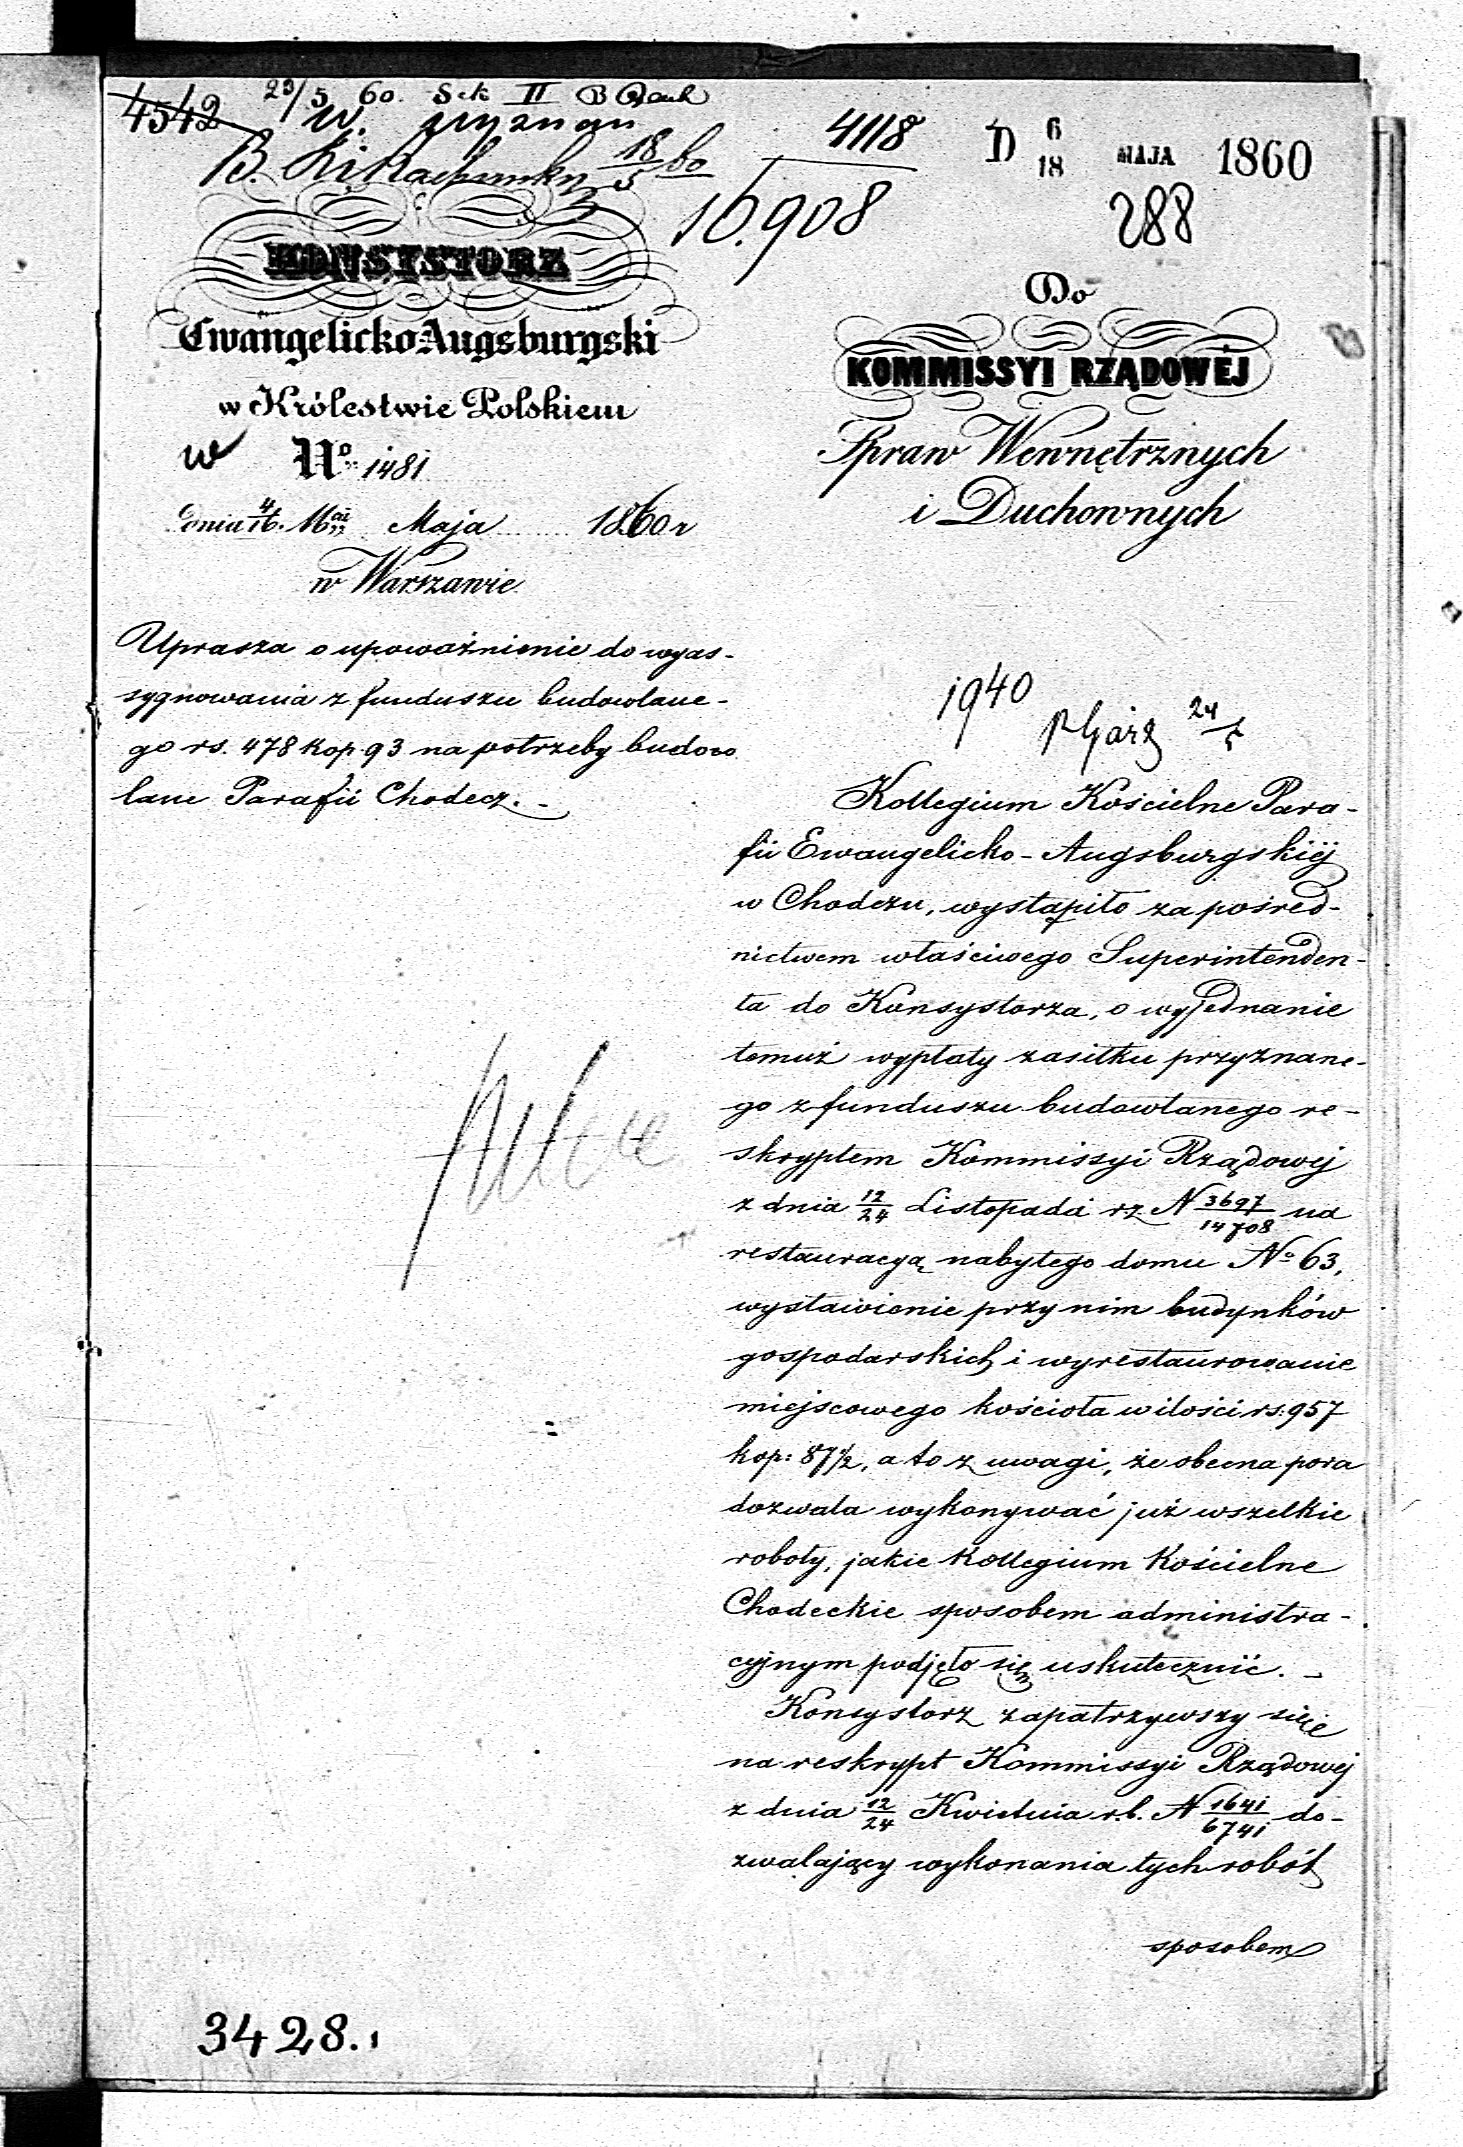 4542
23/5 60. Sek II
W. Wyznań
18/5 60
4118
16.908
D 6/18 MAJA 1860
288
KONSYSTORZ
Ewangelicko-Augsburgski
w Królestwie Polskiem
No 1481
dnia 4/16 Maja 1860 r
w Warszawie
Uprasza o upoważnienie do wyas-
sygnowania z funduszu budowlane-
go rs. 478 kop 93 na potrzeby budow
lane Parafii Chodecz.
Do
KOMMISSYI RZĄDOWÉJ
Spraw Wewnętrznych
i Duchownych
1940
24/5
Kollegium Kościelne Para-
fii Ewangelicko-Augsburgskiéj
w Chodczu, wystąpiło za pośred-
nictwem właściwego Superintenden-
ta do Konsystorza, o wyjednanie
temuż wypłaty zasiłku przyznane-
go z funduszu budowlanego re-
skryptem Kommissyi Rządowej
z dnia 12/24 Listopada rz N 3697/14708 na
restauracyą nabytego domu No 63,
wystawienie przy nim budynków
gospodarskich i wyrestaurowanie
miejscowego kościoła w ilości rs. 957
kop: 87 1/2, a to z uwagi, że obecna pora
dozwala wykonywać już wszelkie
roboty, jakie Kollegium Kościelne
Chodeckie sposobem administra-
cyjnym podjęło się uskutecznić.
Konsystorz zapatrzywszy się
na reskrypt Kommissyi Rządowej
z dnia 12/24 Kwietnia r.b. N 1641/6741 do-
zwalający wykonania tych robót
sposobem
3428.